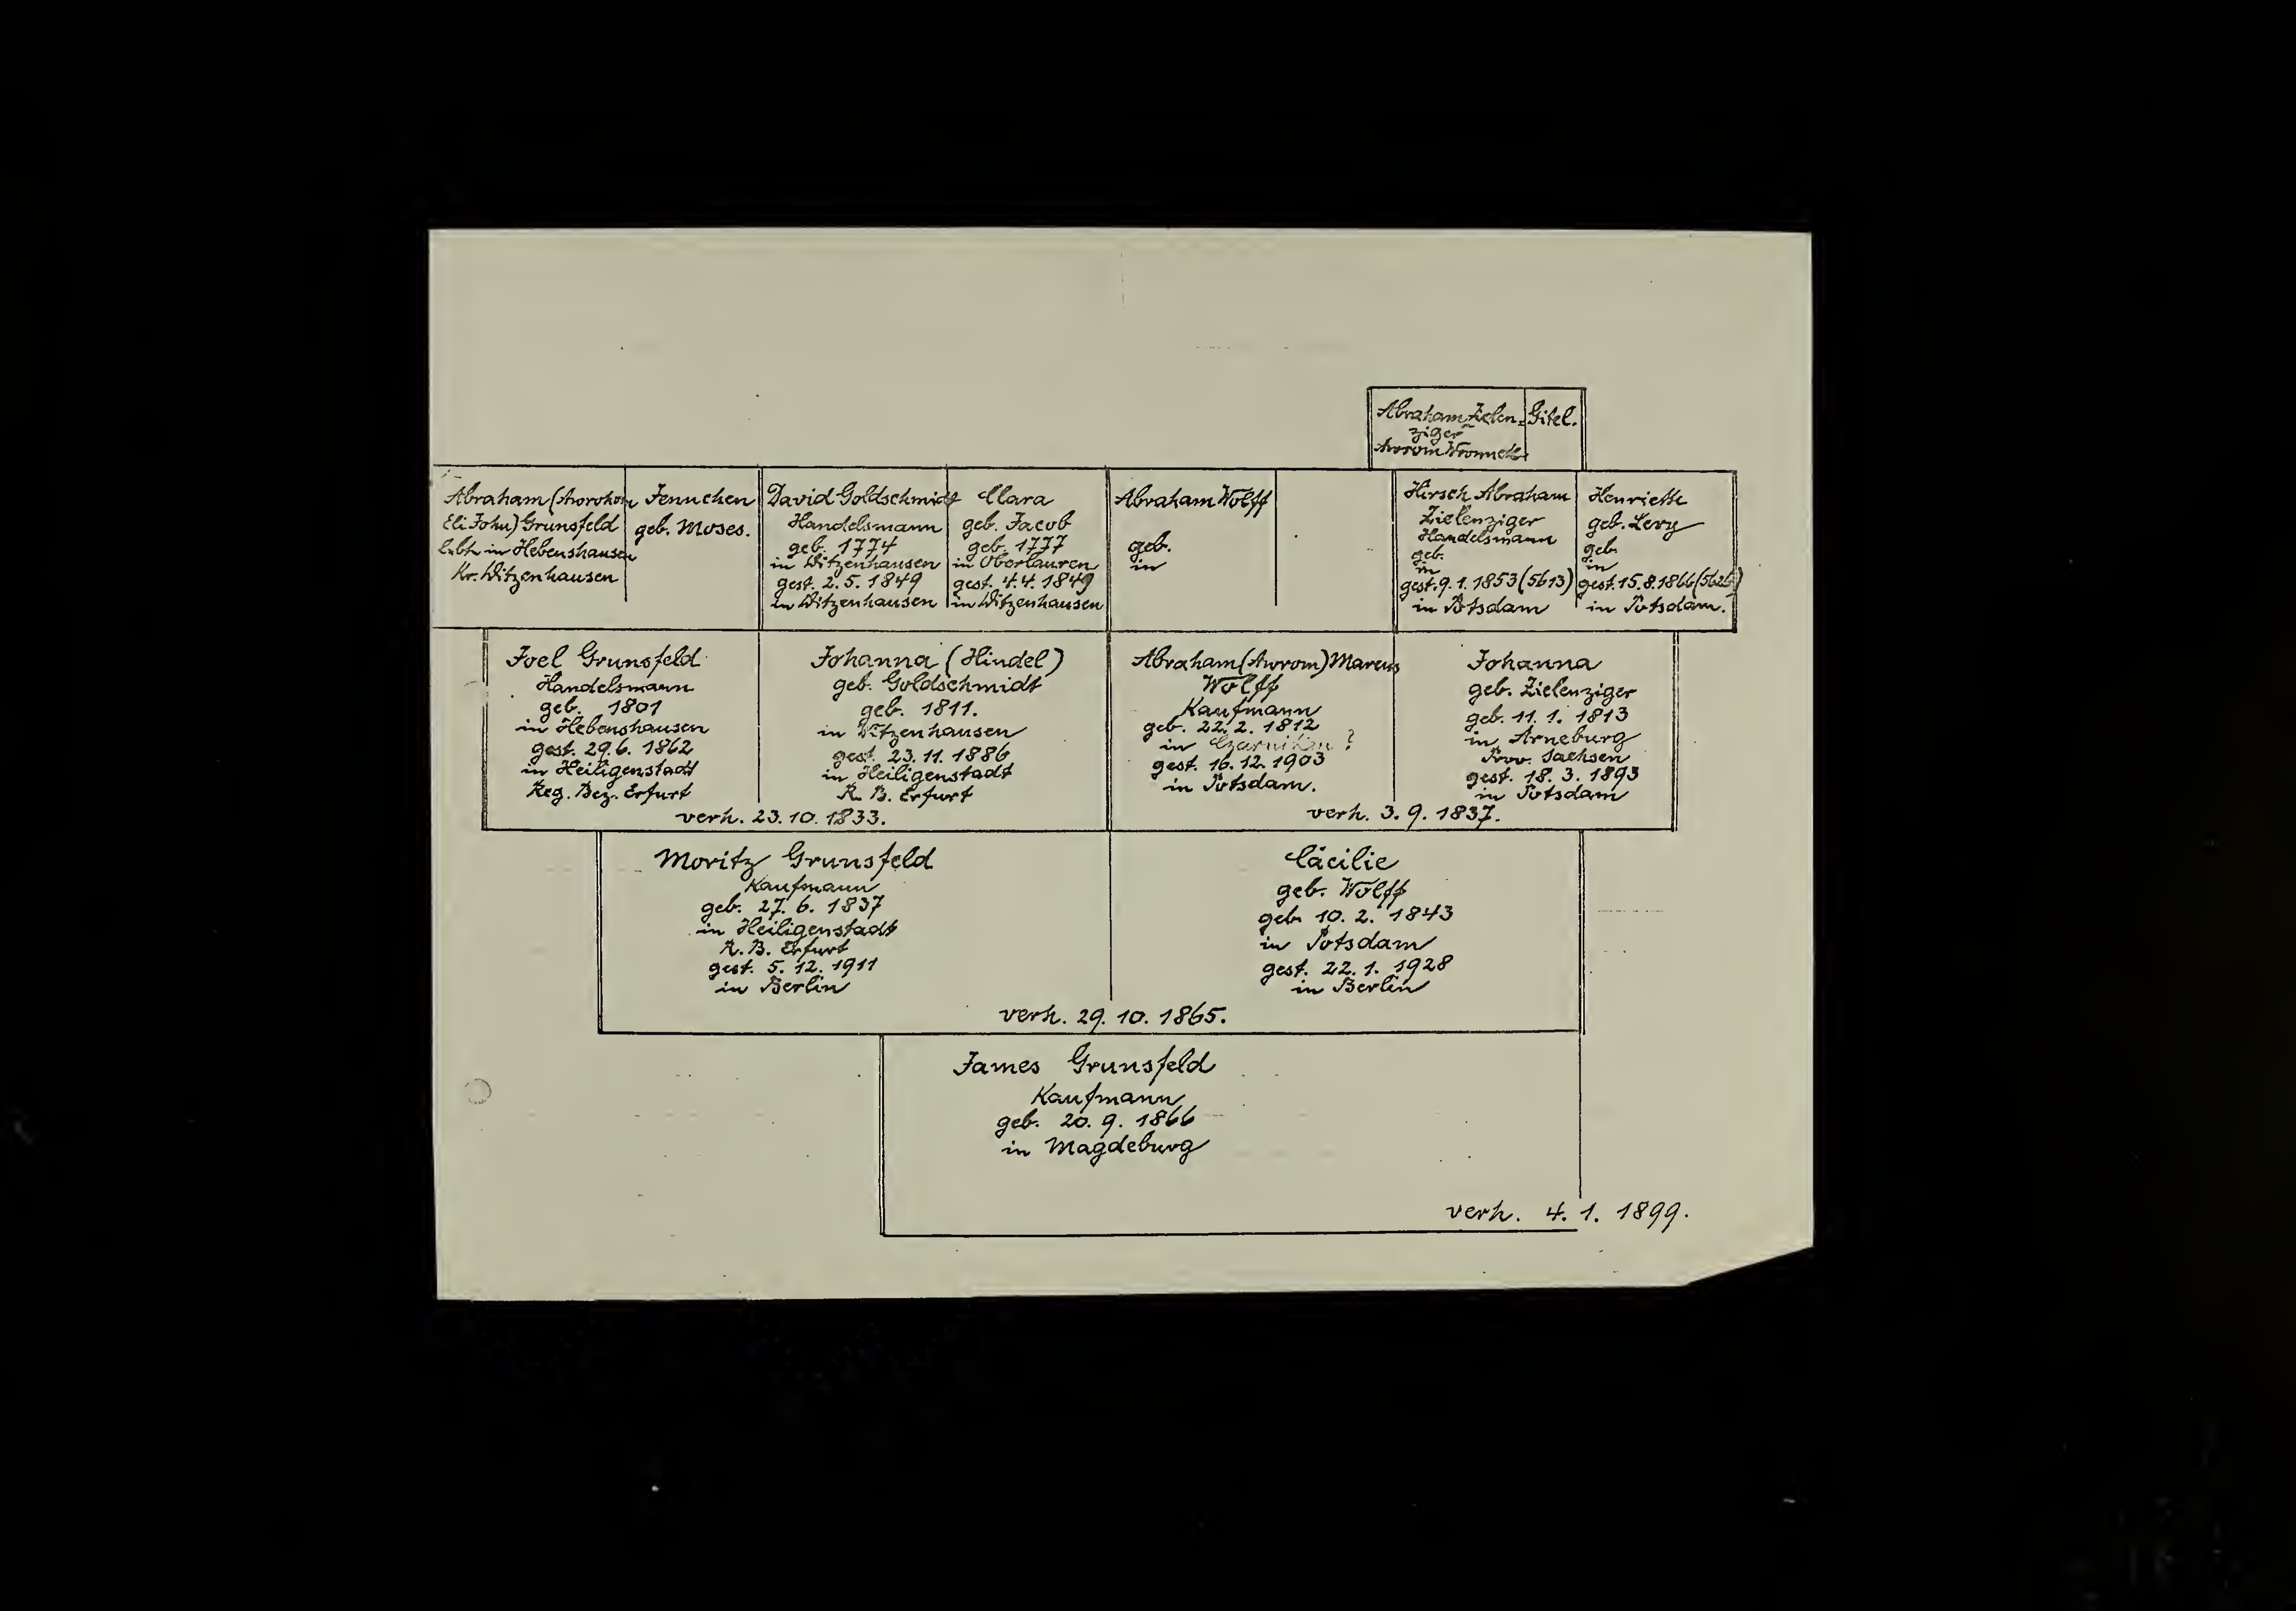 Abraham Zielen-
ziger
Awrom
Gitel.
Abraham (
Eli John) Grunsfeld
lebte in Hebenshausen
Kr. Witzenhausen
Jennchen
geb. Moses.
David Goldschmidt
Handelsmann
geb. 1774
in Witzenhausen
gest. 2. 5. 1849
in Witzenhausen
Clara
geb. Jacob
geb. 1777
in Oberlauren
gest. 4. 4. 1849
in Witzenhausen
Abraham Wolff
geb.
in
Hirsch Abraham
Zielenziger
Handelsmann
geb.
in
gest. 9. 1. 1853 (5613)
in Potsdam
Henriette
geb. Levy
geb.
in
gest. 15. 8. 1866 (5626)
in Potsdam.
Joel Grunsfeld
Handelsmann
geb. 1801
in Hebenshausen
gest. 29. 6. 1862
in Heiligenstadt
Reg. Bez. Erfurt
Johanna (Hindel)
geb. Goldschmidt
geb. 1811.
in Witzenhausen
gest. 23. 11. 1886
in Heiligenstadt
R. B. Erfurt
verh. 23. 10. 1833.
Abraham (Awrom) Marcus
Wolff
Kaufmann
geb. 22. 2. 1812
in Czarnikau ?
gest. 16. 12. 1903
in Potsdam.
Johanna
geb. Zielenziger
geb. 11. 1. 1813
in Arneburg
Prov. Sachsen
gest. 18. 3. 1893
in Potsdam
verh. 3. 9. 1837.
Moritz Grunsfeld
Kaufmann
geb. 27. 6. 1837
in Heiligenstadt
R. B. Erfurt
gest. 5. 12. 1911
in Berlin
Cäcilie
geb. Wolff
geb. 10. 2. 1843
in Potsdam
gest. 22. 1. 1928
in Berlin
verh. 29. 10. 1865.
James Grunsfeld
Kaufmann
geb. 20. 9. 1866
in Magdeburg
verh. 4. 1. 1899.